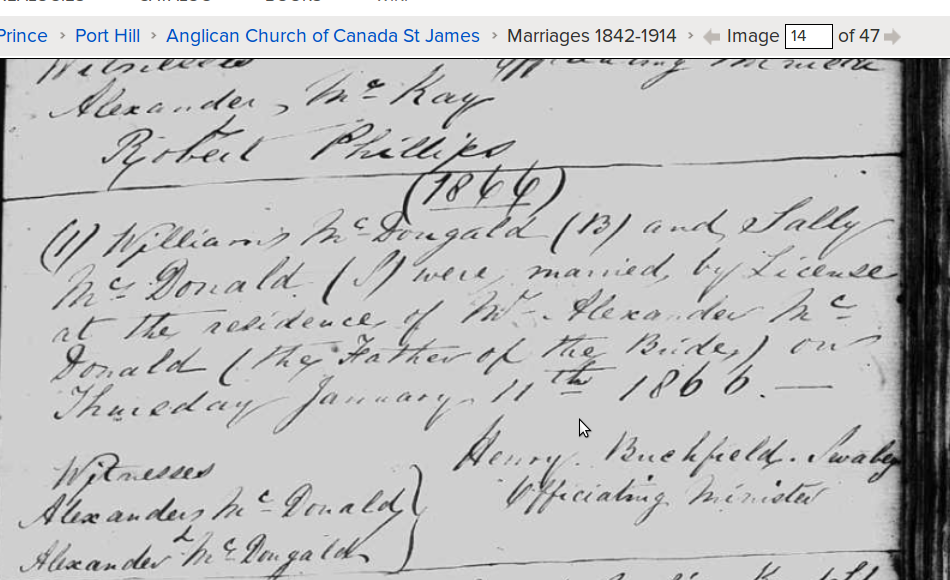 Prince › Port Hill › Anglican Church of Canada St James › Marriages 1842-1914 › Image 14 of 47
Witnesses Officiating Minister
Alexander Mr Kay
Robert Phillips
(1866)
(1) William Mc Dougald (B) and Sally
Mc Donald (S) were married by License
at the residence of Mr Alexander Mc
Donald (the Father of the Bride) on
Thursday January 11th 1866. —
Henry Buchfield Swabey
Officiating Minister
Witnesses
Alexander Mc Donald
Alexander Mc Dougald